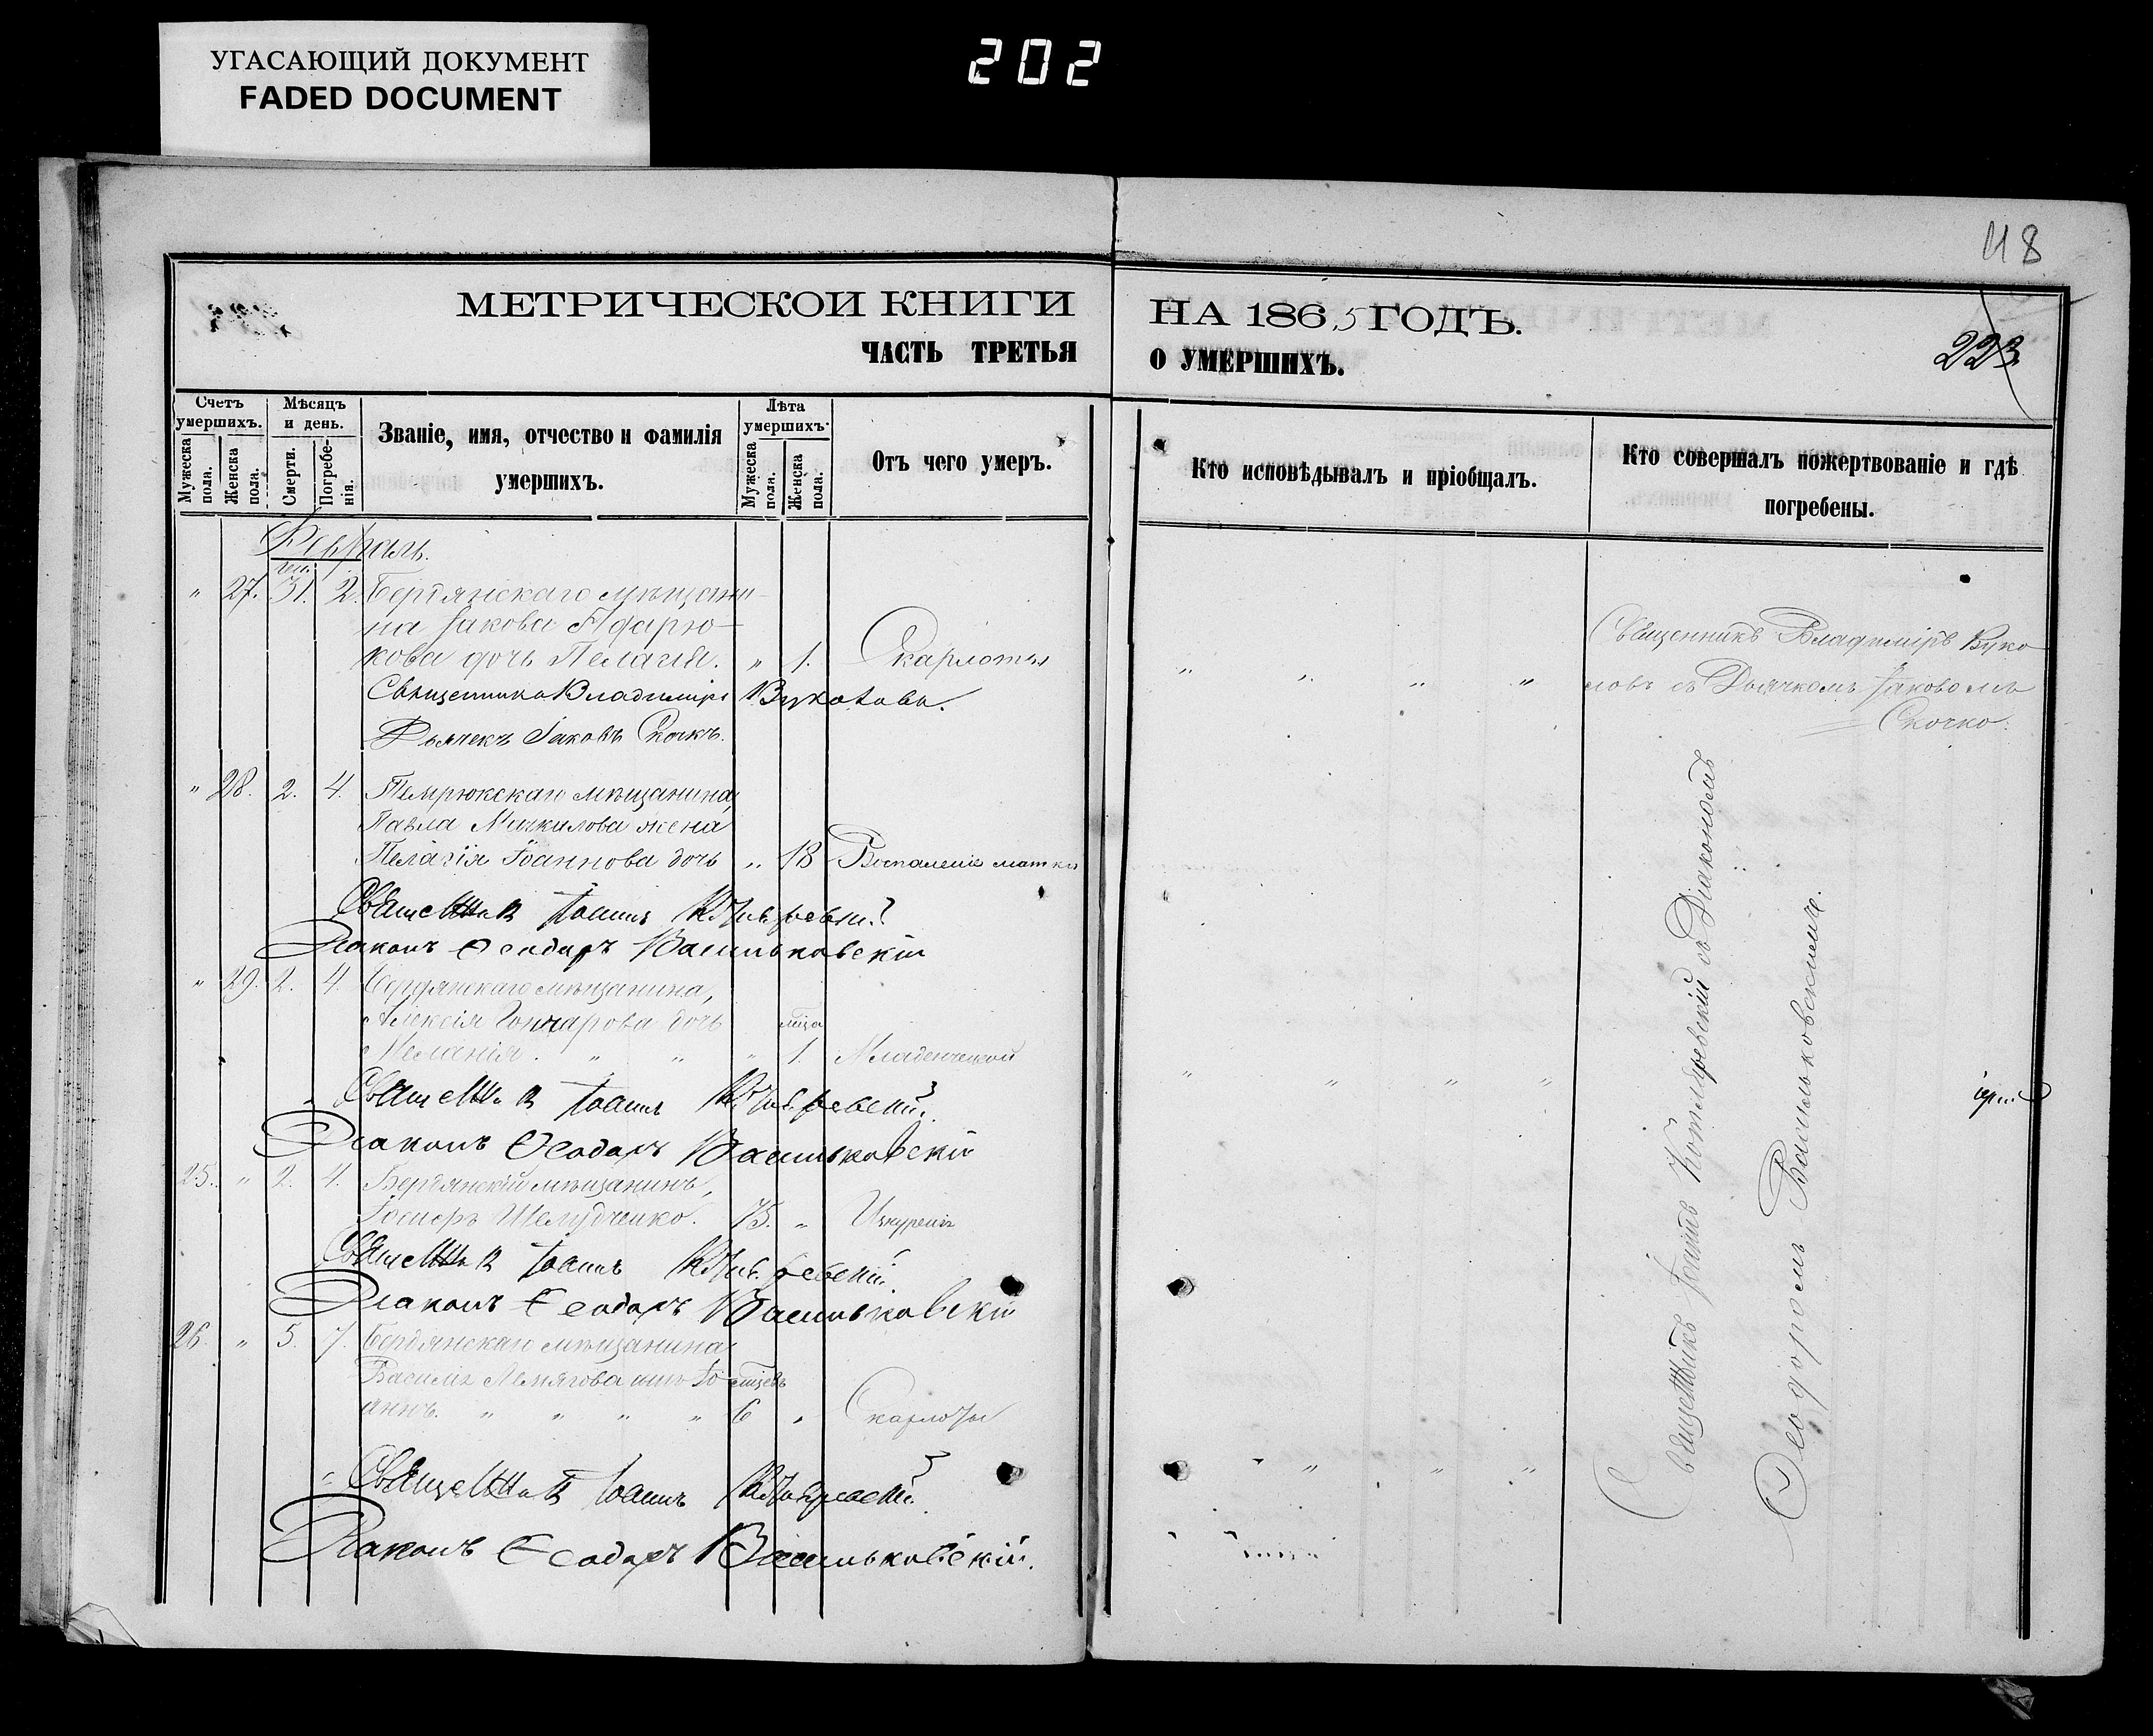 УГАСАЮЩИЙ ДОКУМЕНТ
FADED DOCUMENT
202
48
МЕТРИЧЕСКОИ КНИГИ
НА 1865 ГОДЪ.
ЧАСТЬ ТРЕТЬЯ
О УМЕРШИХЪ.
223
Счетъ умершихъ.
Мужеска пола.
Женска пола.
Мѣсяцъ и день.
Смерти.
Погребенія.
Званіе, имя, отчество и фамилія
умершихъ.
Лѣта умершихъ.
Мужеска пола.
Женска пола.
Отъ чего умеръ.
Кто исповѣдывалъ и пріобщалъ.
Кто совершалъ пожертвованіе и гдѣ
погребены.
Февраль.
" 27. 31. 2. Бердянскаго мѣщани-
на Іакова
кова дочь Пелагія. " 1. Скарлоты
Священникъ Владиміръ Вуколовъ.
Дьячекъ Іаковъ Скочко.
Священникъ Владиміръ Вуко
ловъ съ Дьячкомъ Іаковомъ
Скочко.
" 28. 2. 4. Темрюкскаго мѣщанина,
Павла жена
Пелагія Іоаннова дочь " 18 Воспаленіе матки
Священникъ Іоаннъ Котляревскій
Діаконъ Ѳеодоръ Васильковскій
" 29. 2. 4. Бердянскаго мѣщанина,
Алексія Гончарова дочь мѣся
Меланія. " " " 1. Младенческой
Священникъ Іоаннъ Котляревскій
Діаконъ Ѳеодоръ Васильковскій
25. " 2. 4. Бердянскій мѣщанинъ,
Шелудченко. 75. "
Священникъ Іоаннъ Котляревскій
Діаконъ Ѳеодоръ Васильковскій
26. " 5. 7. Бердянскаго мѣщанина
Василія сынъ Іо-
аннъ. " " " " 6 " Скарлоты
Священникъ Іоаннъ Котляревскій
Діаконъ Ѳеодоръ Васильковскій.
Священникъ Іоаннъ Котляревскій съ Діакономъ
Ѳеодоромъ Васильковскимъ.